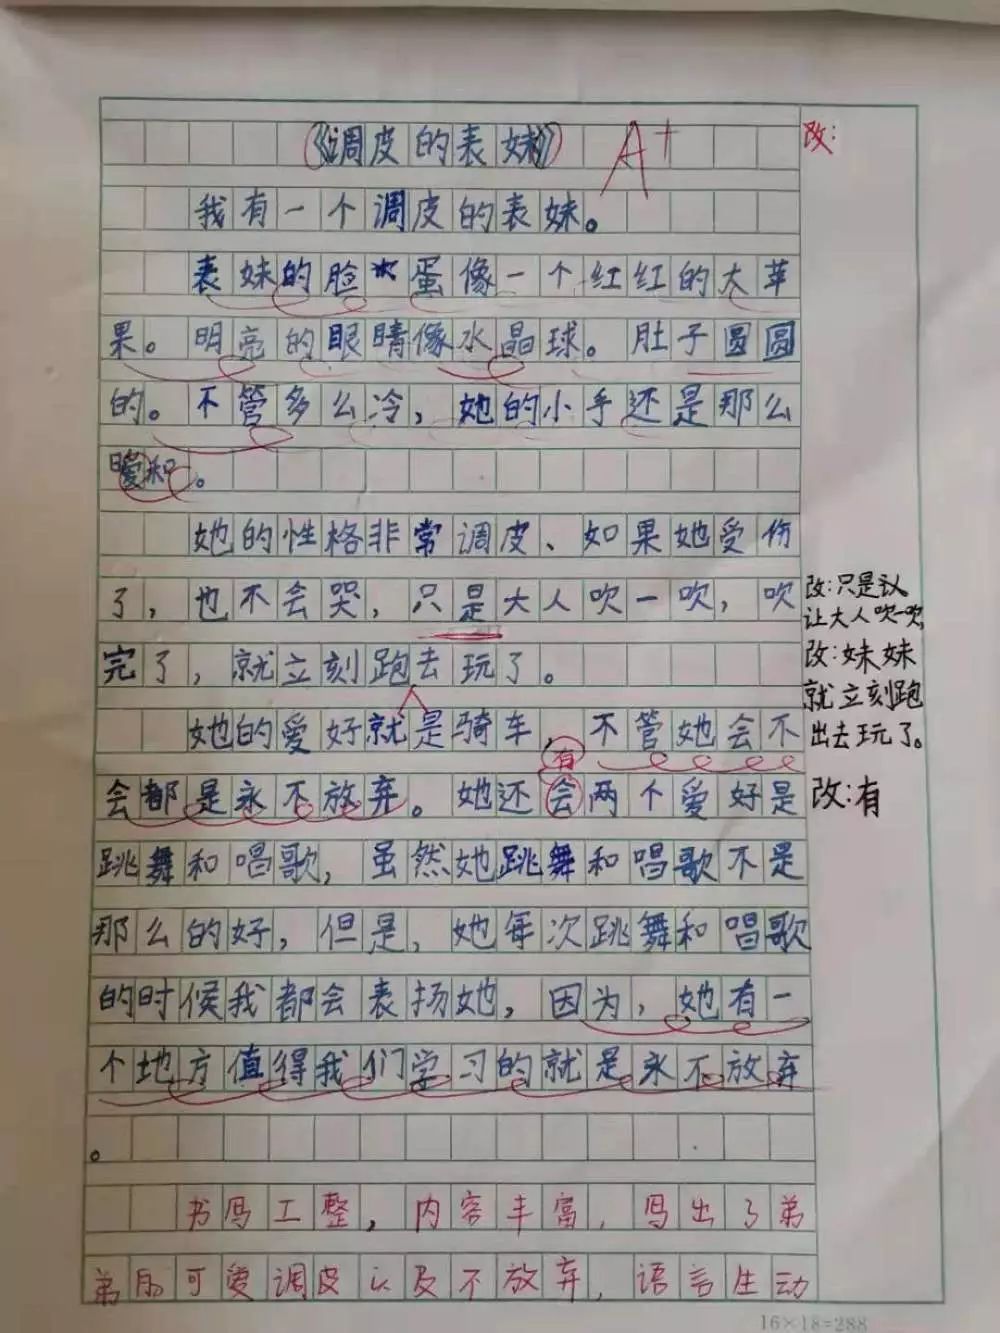 《调皮的表妹》
A+
改:
我有一个调皮的表妹。
表妹的脸蛋像一个红红的大苹
果。明亮的眼睛像水晶球。肚子圆圆
的。不管多么冷,她的小手还是那么
暖和。
她的性格非常调皮、如果她受伤
了,也不会哭,只是大人吹一吹,吹
完了,就立刻跑去玩了。
改:只是认
让大人吹一吹
改:妹妹
就立刻跑
出去玩了。
她的爱好就是骑车,不管她会不
有
会都是永不放弃。她还会两个爱好是
改:有
跳舞和唱歌,虽然她跳舞和唱歌不是
那么的好,但是,她每次跳舞和唱歌
的时候我都会表扬她,因为,她有一
个地方值得我们学习的就是永不放弃
。
书写工整,内容丰富,写出了弟
弟的可爱调皮以及不放弃,语言生动
16×18=288